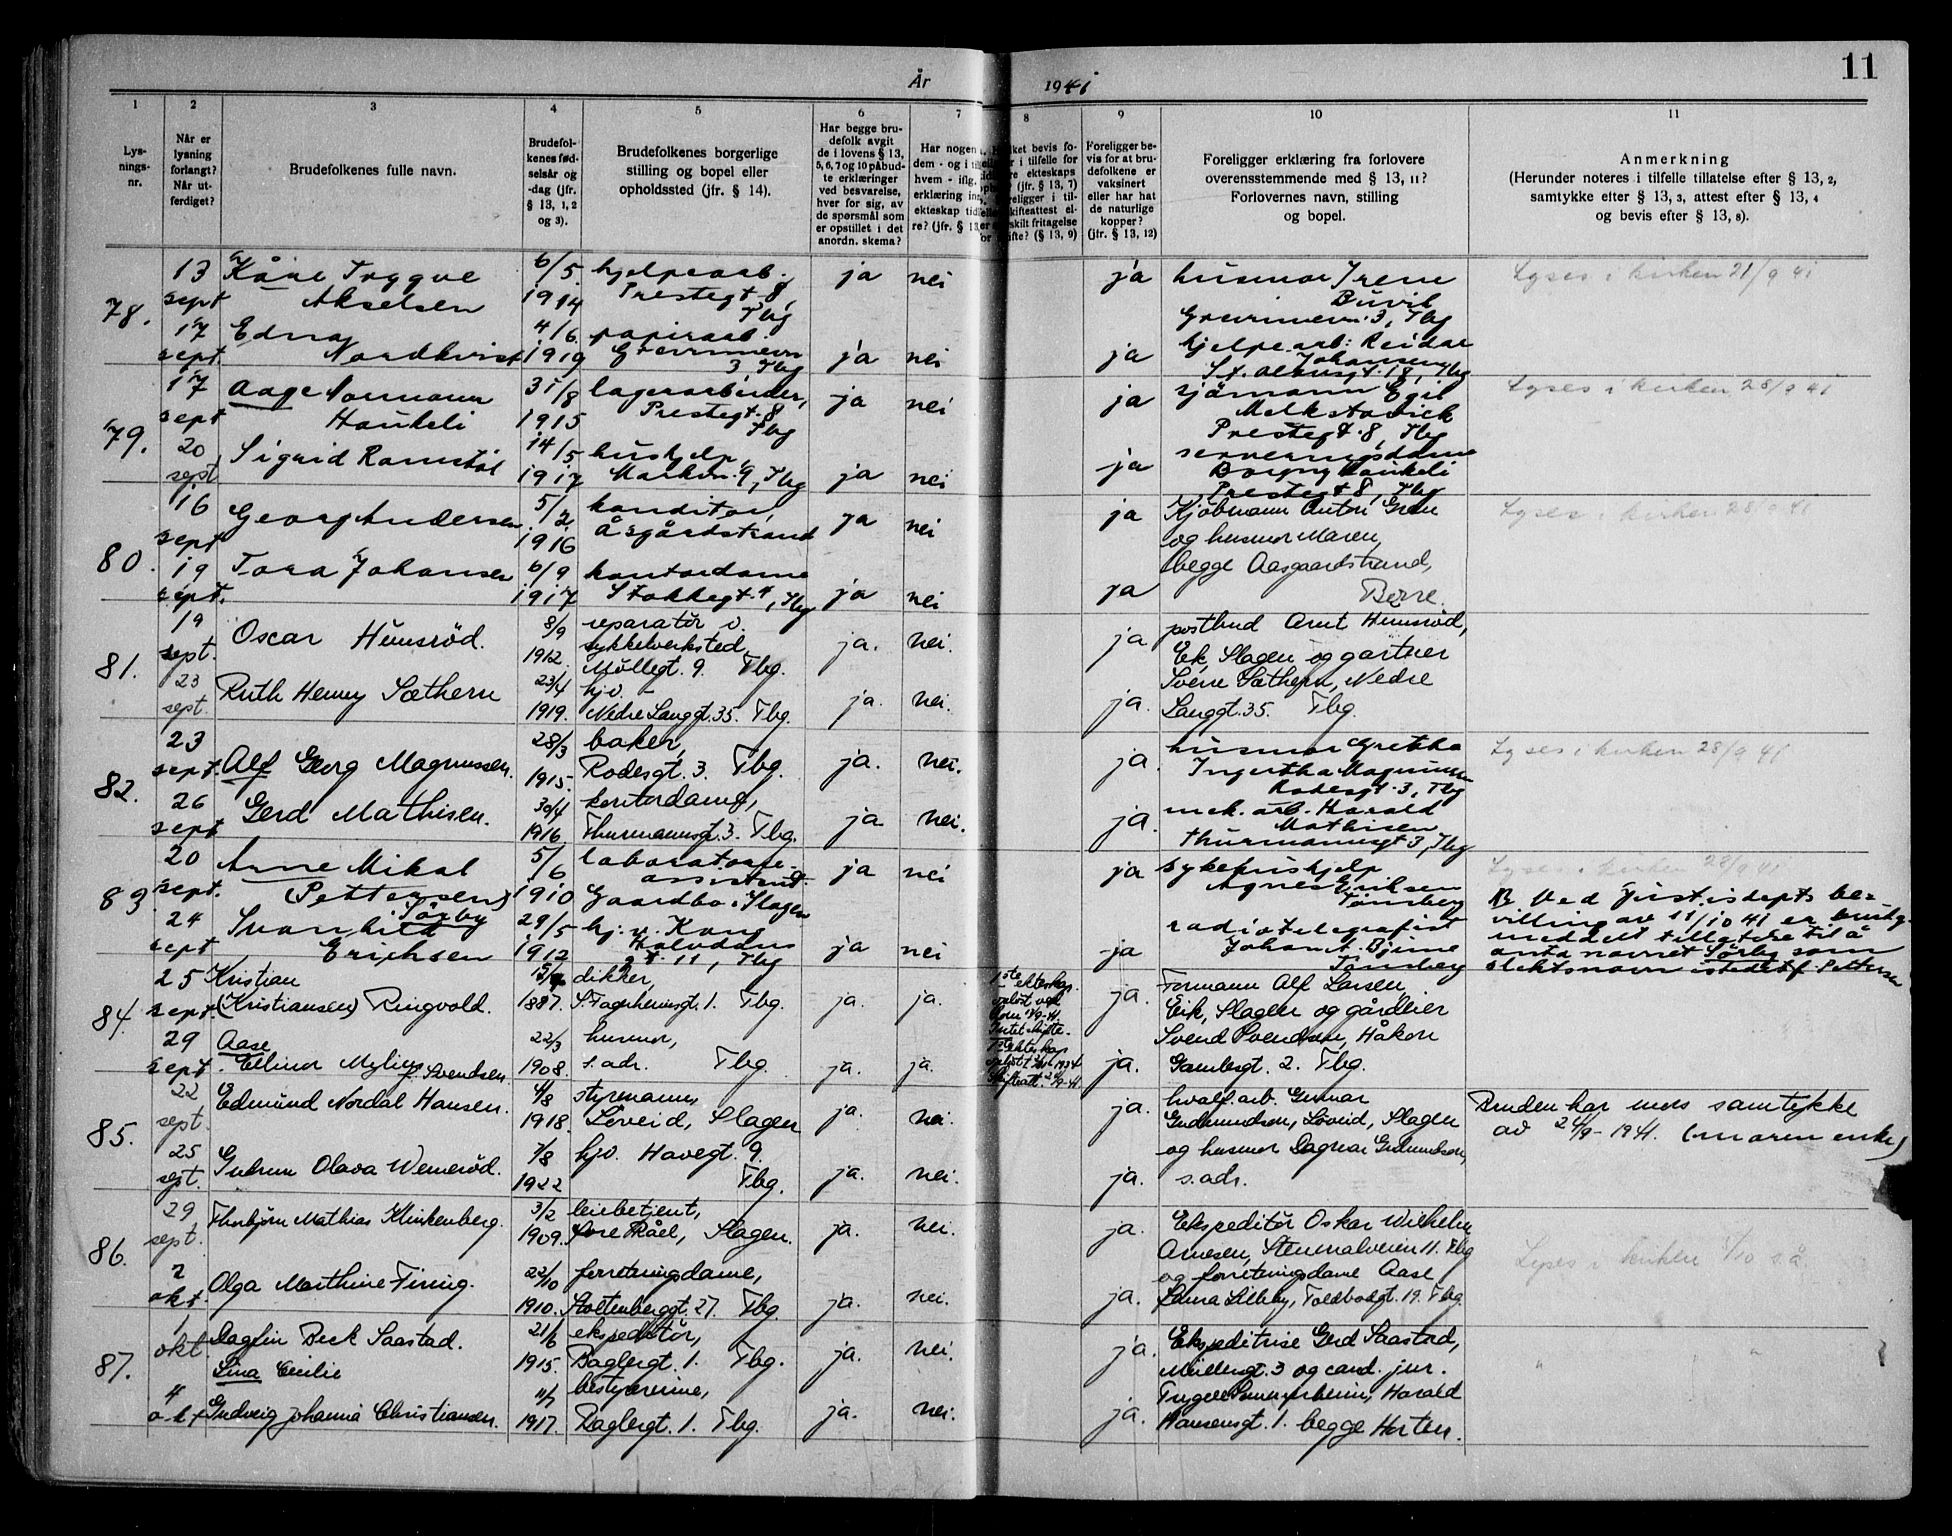 11
År 1941
1 2 3 4 5 6 7 8 9 10 11
Lys-
nings-
nr.
Når er
lysning
forlangt?
Når ut-
ferdiget?
Brudefolkenes fulle navn.
Brudefol-
kenes fød-
selsår og
-dag (jfr.
§ 13, 1, 2
og 3).
Brudefolkenes borgerlige
stilling og bopel eller
opholdssted (jfr. § 14).
Har begge bru-
defolk avgit
de i lovens § 13,
5, 6, 7 og 10 påbud-
te erklæringer
ved besvarelse,
hver for sig, av
de spørsmål som
er opstillet i det
anordn. skema?
Har nogen
dem - og i
hvem - iflg.
erklæring
ekteskap tid
re? (jfr. § 13
bevis fo-
r i tilfelle for
ekteskaps
(jfr. § 13, 7)
religger i til-
skifteattest el-
skilt fritagelse
ifte? (§ 13, 9)
Foreligger be-
vis for at bru-
defolkene er
vaksinert
eller har hat
de naturlige
kopper?
(jfr. § 13, 12)
Foreligger erklæring fra forlovere
overensstemmende med § 13, 11?
Forlovernes navn, stilling
og bopel.
Anmerkning
(Herunder noteres i tilfelle tillatelse efter § 13, 2,
samtykke efter § 13, 3, attest efter § 13, 4
og bevis efter § 13, 8).
78.
13 sept Kåre Tryggve Akselsen 6/5 1914 hjelpearb. Prestegt. 8, Tbg ja nei ja husmor Irene
3, Tbg
Lyses i kirken 21/9 41
17 sept. Edna Nordkvist 4/6 1919 papirarb.
3 Tbg ja nei ja hjelpearb. Reidar
Johansen
St. Olavsgt. 18, Tbg
79.
17 sept Aage Normann Haukeli 31/8 1915 lagerarbeider, Prestegt. 8 Tbg ja nei ja sjömann Egil
Prestegt. 8, Tbg
Lyses i kirken 28/9 41
20 sept Sigrid Ramstöl 14/5 1917 hushjelp, 9, Tbg ja nei ja serveringsdame
Borgny Haukeli
Prestegt 8, Tbg
80.
16 sept Georg Andersen 5/2 1916 konditor, Åsgårdstrand ja nei ja Kjöbmann Anton
og husmor Maren,
begge Aasgaardstrand,
Lyses i kirken 28/9 41
19 sept. Tora Johansen 6/9 1917 kontordame Stokkegt. 4, Tbg ja nei ja
Borre.
81.
19 sept. Oscar Hemsröd. 8/9 1912. reparatör v.
sykkelverksted,
Möllegt. 9. Tbg. ja. nei. ja postbud Arnt Hemsröd,
Eik, Slagen og gartner
23 sept. Ruth Henny Sæthern 23/4 1919. hjv. -
Nedre Langgt. 35. Tbg. ja. nei. ja. Sverre Sæthern, Nedre
Langgt. 35. Tbg.
82.
23 sept. Alf Georg Magnussen. 28/3 1915. baker,
Rodesgt. 3. Tbg. ja. nei. ja. husmor Grethe
Ingertha Magnussen
Rodesgt. 3, Tbg
Lyses i kirken 28/9 41
26 sept Gerd Mathisen. 30/4 1916 kontordame,
Thurmannsgt. 3. Tbg. ja nei. ja. mek. arb. Harald
Mathisen
Thurmannsgt 3, Tbg
83
20 sept. Arne Mikal
(Pettersen)
Sörby 5/6 1910 laboratorie-
assistent.
Gaardbo i Slagen ja nei ja sykehushjelp
Agnes Eriksen
Tönsberg
Lyses i kirken 28/9 41
NB. Ved Justisdepts be-
villing av 11/10 41 er brudg.
meddelt tillatelse til å
anta navnet Sörby som
slektsnavn istedetf. Pettersen
24 sept Svanhild
Erichsen 29/5 1912 hj. v. Kong
Halvdans
gt. 11, Tbg ja nei ja radiotelegrafist
Johan A. Bjune
Tönsberg
84.
25 sept Kristian
(Kristiansen) Ringvold. 1887. dikker,
S. Fagerheimsgt. 1. Tbg. ja. ja. 1ste ekteskap
oplöst ved
ja. Formann Alf Larsen
Eik, Slagen og gårdeier
29 sept. Aase
Ellinor Mylius f. Svendsen. 22/3 1908. husmor,
s. adr. Tbg. ja. ja. ekteskap
oplöst
ja. Svend Svendsen, Håkon
Gamlesgt. 2. Tbg.
85.
22 sept. Edmund Nordal Hansen. 4/8 1918. styrmann,
Löveid, Slagen ja. nei. ja. hvalf. arb. Gunnar
Gudmundsen, Löveid, Slagen
Bruden har mors samtykke
av 24/9 - 1941. (moren enke)
25 sept. Gudrun Olava Wemeröd. 7/8 1922 hjv. Havegt. 9.
Tbg. ja. nei. ja. og husmor Dagmar Gudmundsen,
s. adr.
86.
29 sept. Thorbjörn Mathias Klinkenberg. 3/2 1909. leiebetjent,
Råel, Slagen. ja. nei. ja. Ekspeditör Oskar Wilhelm
Arnesen, 11. Tbg
Lyses i kirken
2 okt. Olga Marthine Firing. 22/10 1910. forretningsdame,
Stoltenberggt. 27. Tbg. ja. nei. ja. og forretningsdame Aase
Laura Lilleby, Toldbodgt. 19. Tbg.
87.
1 okt. Dagfin Beck Saastad. 21/6 1915. ekspeditör,
Baglergt. 1. Tbg. ja. nei. ja. Ekspeditrise Gerd Saastad,
Möllergt. 3 og cand. jur.
" "
4 okt Lina Cecilie
Gudveig Johanna Christiansen. 11/7 1917. bestyrerinne,
Baglergt. 1. Tbg. ja. nei. ja. Harald
Hansensgt. 1. begge Horten.